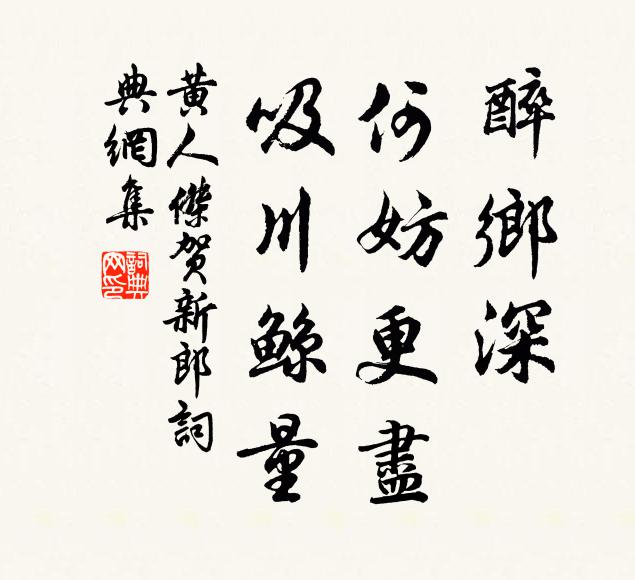 醉鄉深
何妨更盡
吸川鯨量
黃人傑賀新郎詞
典網集
詞典網印